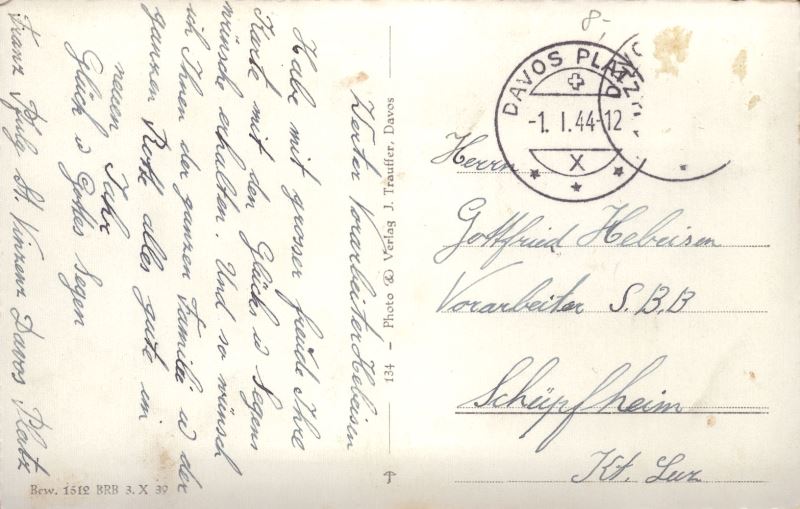 Werter Vorarbeiter Hebeisen
Habe mit grosser freude Ihre
Karte mit den Glücks u Segens
wünsche erhalten. Und so wünsch
ich Ihnen der ganzen Familie u der
ganzen Rotte alles gute im
neuen Jahr
Glück u Gottes Segen
Franz St. Vinzenz Davos Platz
Bew. 1512 BRB 3. X 39
134 – Photo & Verlag J. Trauffer, Davos
8.-
DAVOS PLATZ
-1. I. 44-12
X
DAVOS
Herrn
Gottfried Hebeisen
Vorarbeiter S.B.B
Schüpfheim
Kt. Luz